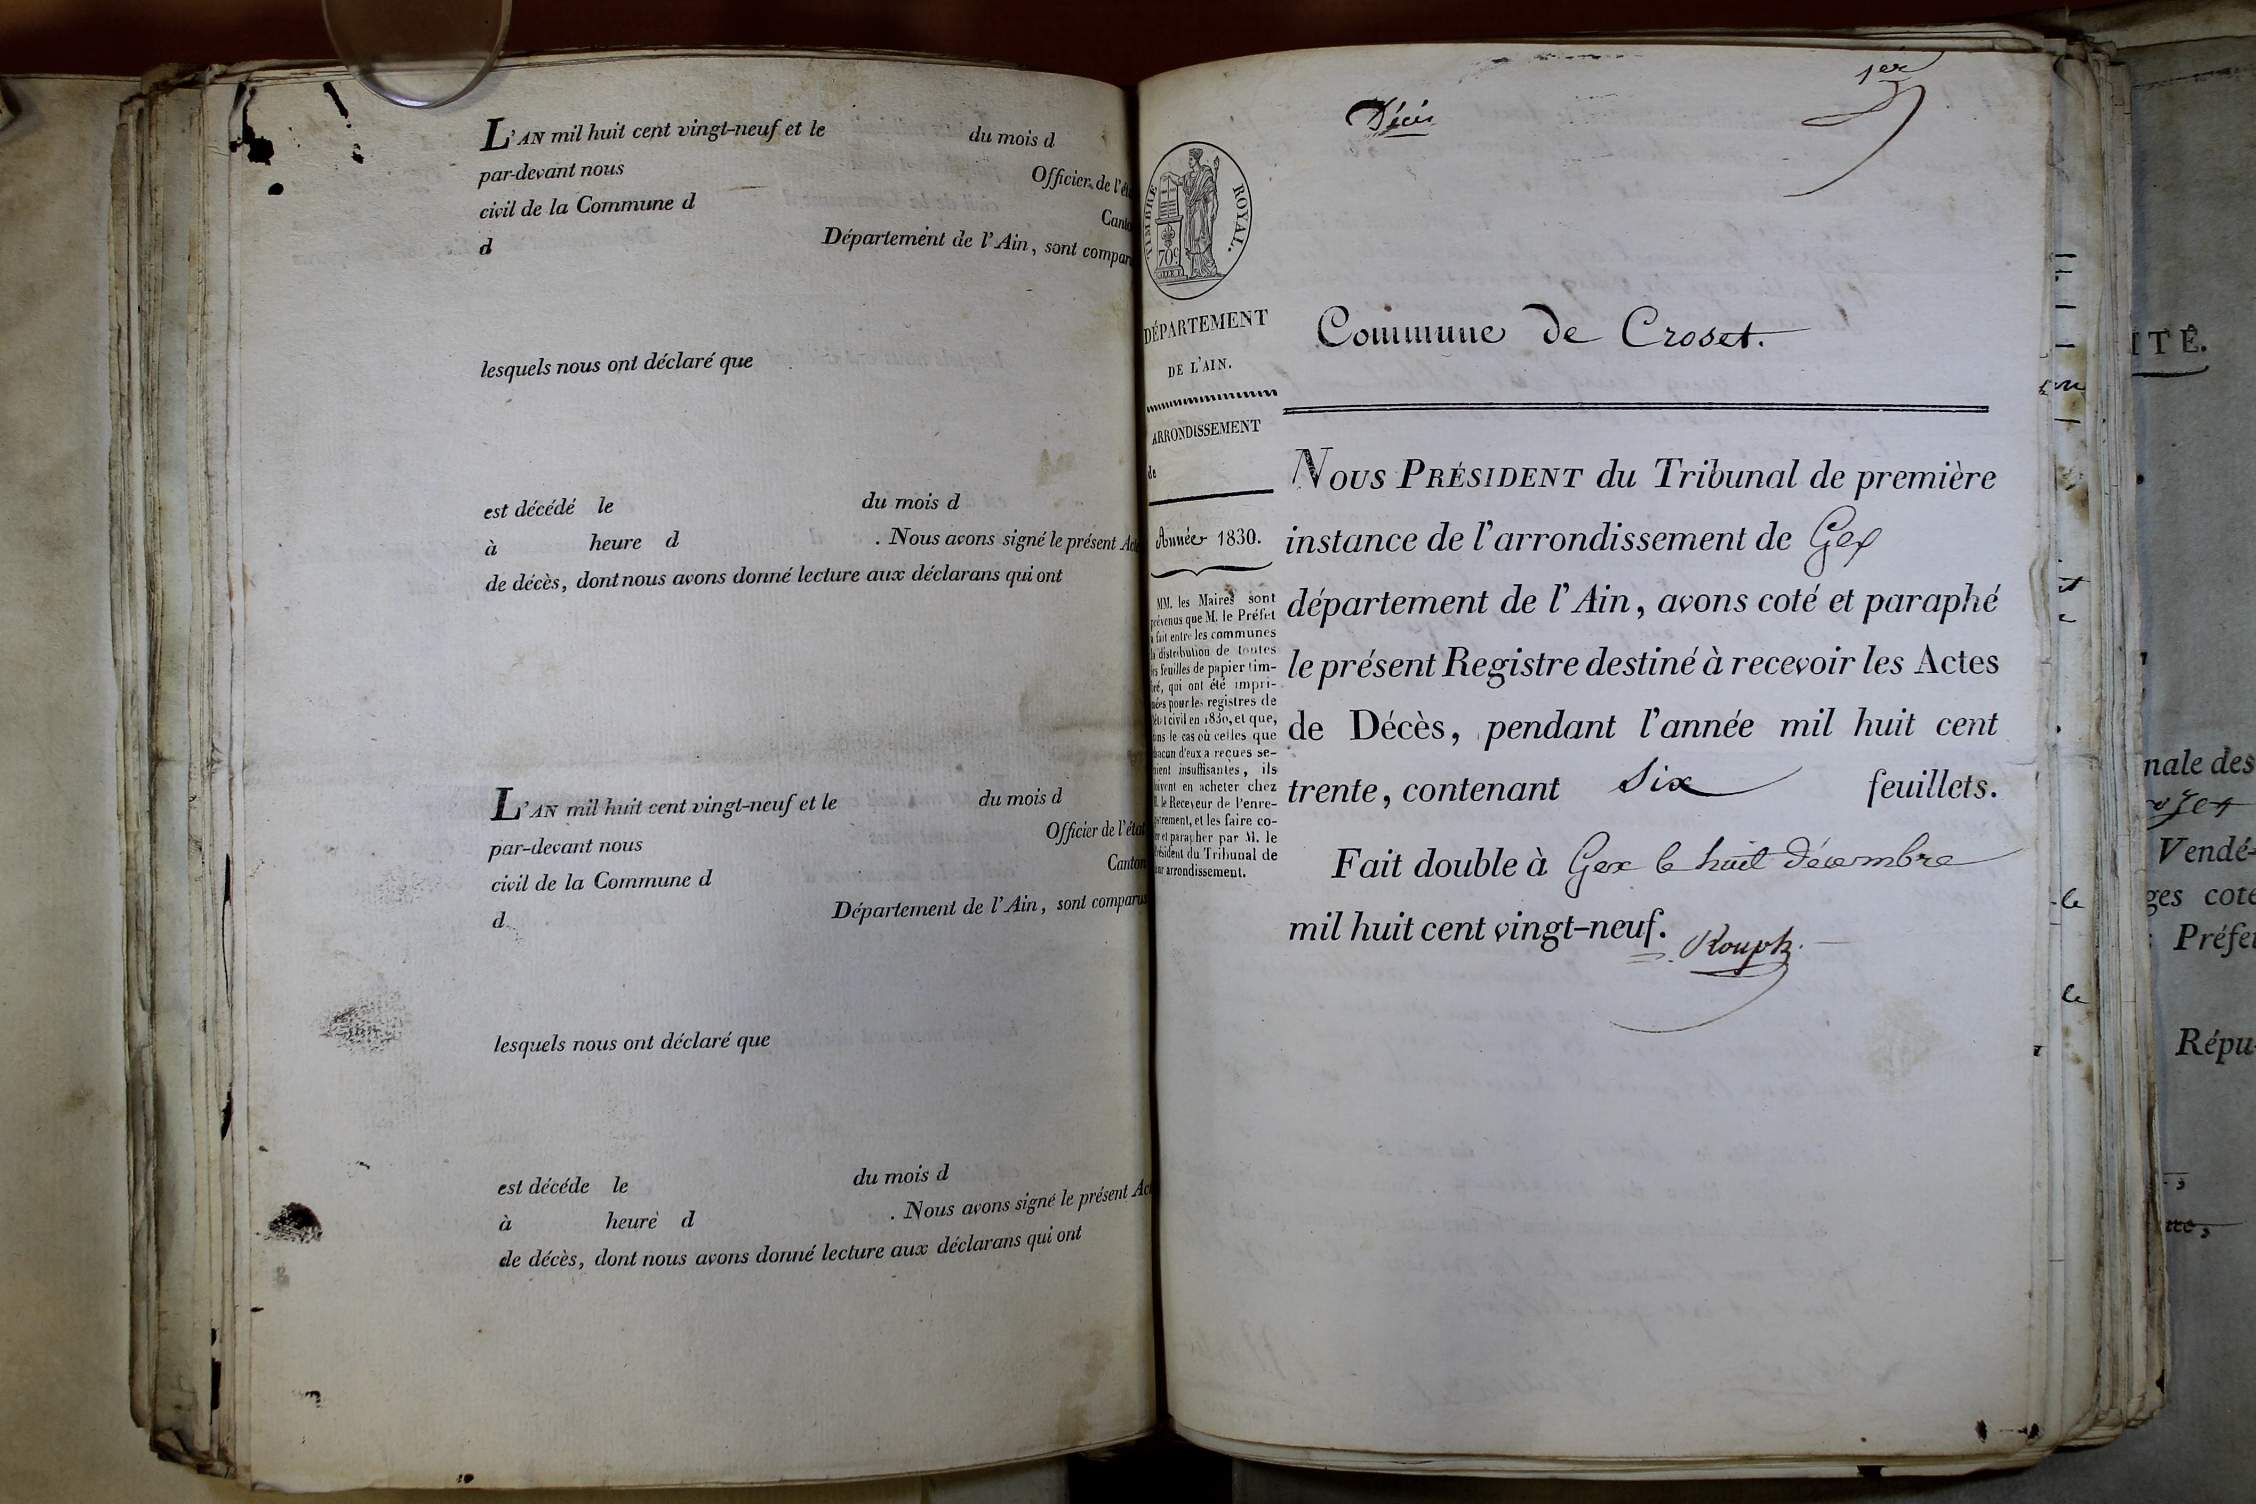 L'AN mil huit cent vingt-neuf et le du mois d
par-devant nous Officier de l'éta
civil de la Commune d Canto
d Département de l'Ain, sont compar
lesquels nous ont déclaré que
est décédé le du mois d
à heure d . Nous avons signé le présent Acte
de décès, dont nous avons donné lecture aux déclarans qui ont
L'AN mil huit cent vingt-neuf et le du mois d
par-devant nous Officier de l'état
civil de la Commune d Canton
d Département de l'Ain, sont comparus
lesquels nous ont déclaré que
est décéde le du mois d
à heure d . Nous avons signé le présent Ac
de décès, dont nous avons donné lecture aux déclarans qui ont
1er
Décès
TIMBRE ROYAL.
70c
DÉPARTEMENT
DE L'AIN.
ARRONDISSEMENT
de
Année 1830.
MM. les Maires sont
prévenus que M. le Préfet
a fait entre les communes
la distribution de toutes
les feuilles de papier tim-
bré, qui ont été impri-
mées pour les registres de
l'état civil en 1830, et que,
dans le cas où celles que
chacun d'eux a reçues se-
raient insuffisantes, ils
doivent en acheter chez
M. le Receveur de l'enre-
gistrement, et les faire co-
ter et parapher par M. le
Président du Tribunal de
leur arrondissement.
Commune de Croset.
NOUS PRÉSIDENT du Tribunal de première
instance de l'arrondissement de Gex
département de l'Ain, avons coté et paraphé
le présent Registre destiné à recevoir les Actes
de Décès, pendant l'année mil huit cent
trente, contenant Six feuillets.
Fait double à Gex le huit décembre
mil huit cent vingt-neuf.
ITÉ.
nale des
Vendé-
ges coté
Préfet
Répu-